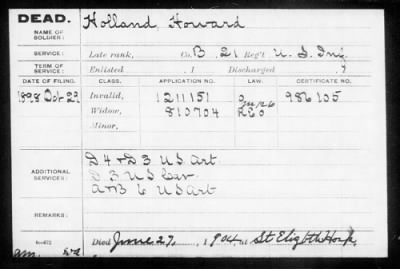 DEAD. Holland, Howard
NAME OF SOLDIER:
SERVICE: Late rank, Co. B, 21 Reg't U. S. Inf.
TERM OF SERVICE: Enlisted , 1 Discharged , 1
DATE OF FILING. CLASS. APPLICATION NO. CERTIFICATE NO.
1898 Oct 29 Invalid, 1211151 986105
Widow, 810704
Minor,
ADDITIONAL SERVICES: D 4 & D 3 US Art
D 3 US Cav
A & B 6 US Art
REMARKS:
Died June 27, 1904, at St Elizbth Hosp,